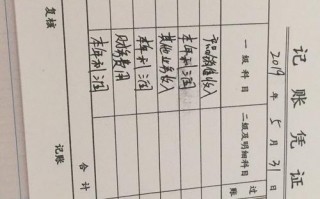 记账凭证
2019年5月31日
一级科目 二级及明细科目 过账
产品销售收入
本年利润
其他业务收入
本年利润
财务费用
本年利润
合计
复核 记账